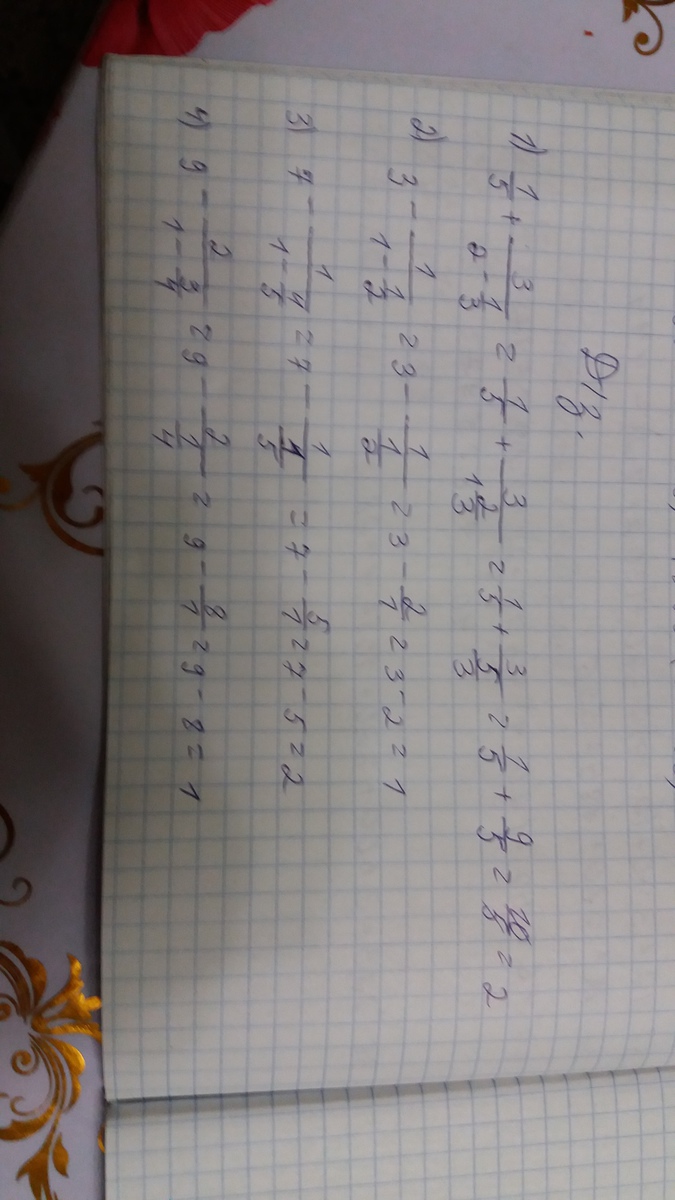 Д/З.
1) 1/5 + 3/(2 - 1/3) = 1/5 + 3/(1 2/3) = 1/5 + 3/(5/3) = 1/5 + 9/5 = 10/5 = 2
2) 3 - 1/(1 - 1/2) = 3 - 1/(1/2) = 3 - 2/1 = 3 - 2 = 1
3) 7 - 1/(1 - 4/5) = 7 - 1/(1/5) = 7 - 5/1 = 7 - 5 = 2
4) 9 - 2/(1 - 3/4) = 9 - 2/(1/4) = 9 - 8/1 = 9 - 8 = 1